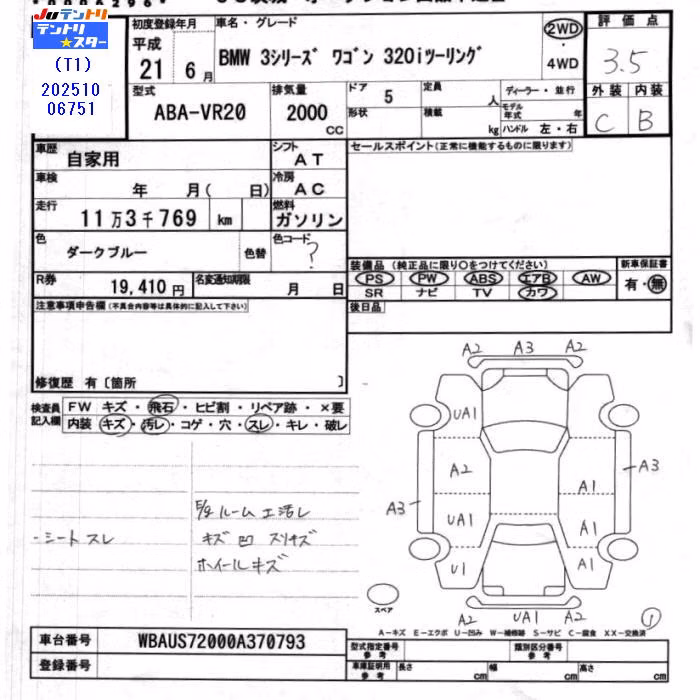 Juテントリ
テントリ★スター
(T1)
202510
06751
初度登録年月
平成
21 6 月
車名・グレード
BMW 3シリーズ ワゴン 320iツーリング
2WD
・
4WD
評価点
3.5
外装 内装
C B
型式
ABA-VR20
排気量
2000
CC
ドア
5
形状
定員
人
積載
kg
ディーラー・並行
モデル年式 年
ハンドル 左・右
車歴
自家用
シフト
AT
車検
年 月( 日)
冷房
AC
走行
11万3千769 km
燃料
ガソリン
色
ダークブルー
色替
色コード
?
R券
19,410 円
名変通知期限
月 日
セールスポイント(正常に機能するものに限ります)
装備品(純正品に限り○をつけてください)
PS PW ABS エアB AW
SR ナビ TV カワ
新車保証書
有・無
後日品
注意事項申告欄(不具合内容等は具体的に記入して下さい)
修復歴 有〔箇所 〕
検査員記入欄
FW キズ・飛石・ヒビ割・リペア跡・×要
内装 キズ・汚レ・コゲ・穴・スレ・キレ・破レ
・シート スレ
ルーム エ活レ
キズ 凹 スリキズ
ホイールキズ
A2 A3 A2
UA1
A2
UA1
U1
A3
A3
A1
A1
A1
A2 UA1 A2
スペア
1
A-キズ E-エクボ U-凹み W-補修跡 S-サビ C-腐食 XX-交換済
車台番号
WBAUS72000A370793
登録番号
型式指定番号
参考
類別区分番号
参考
車庫証明用
参考
長さ cm
幅 cm
高さ cm